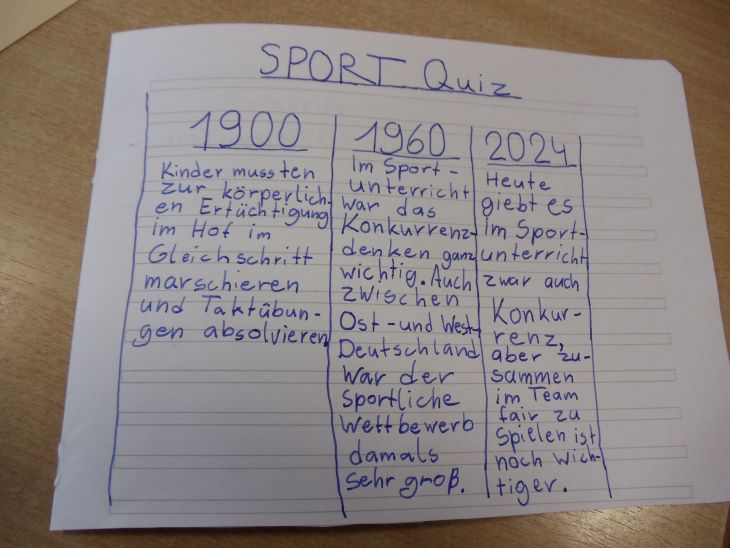 SPORT Quiz
1900
Kinder mussten
zur körperlich-
en Ertüchtigung
im Hof im
Gleichschritt
marschieren
und Taktübun-
gen absolvieren
1960
Im Sport-
unterricht
war das
Konkurrenz-
denken ganz
wichtig. Auch
zwischen
Ost- und West-
Deutschland
war der
sportliche
Wettbewerb
damals
sehr groß.
2024
Heute
giebt es
im Sport-
unterricht
zwar auch
Konkur-
renz,
aber zu-
sammen
im Team
fair zu
spielen ist
noch wich-
tiger.